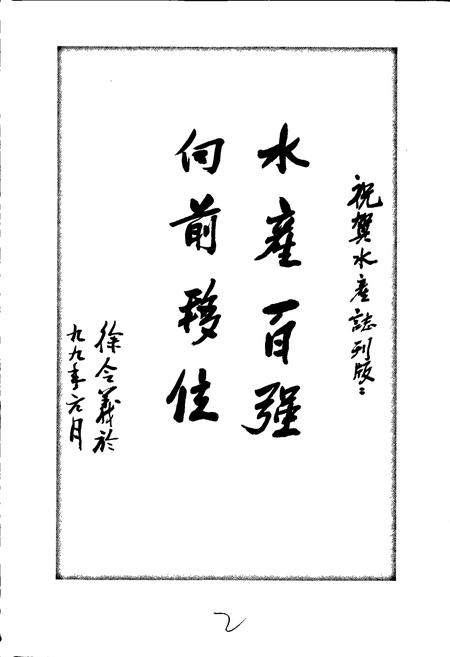 祝贺水產誌刊版：
水產百强
向前移位
徐令義於
九九年六月
2